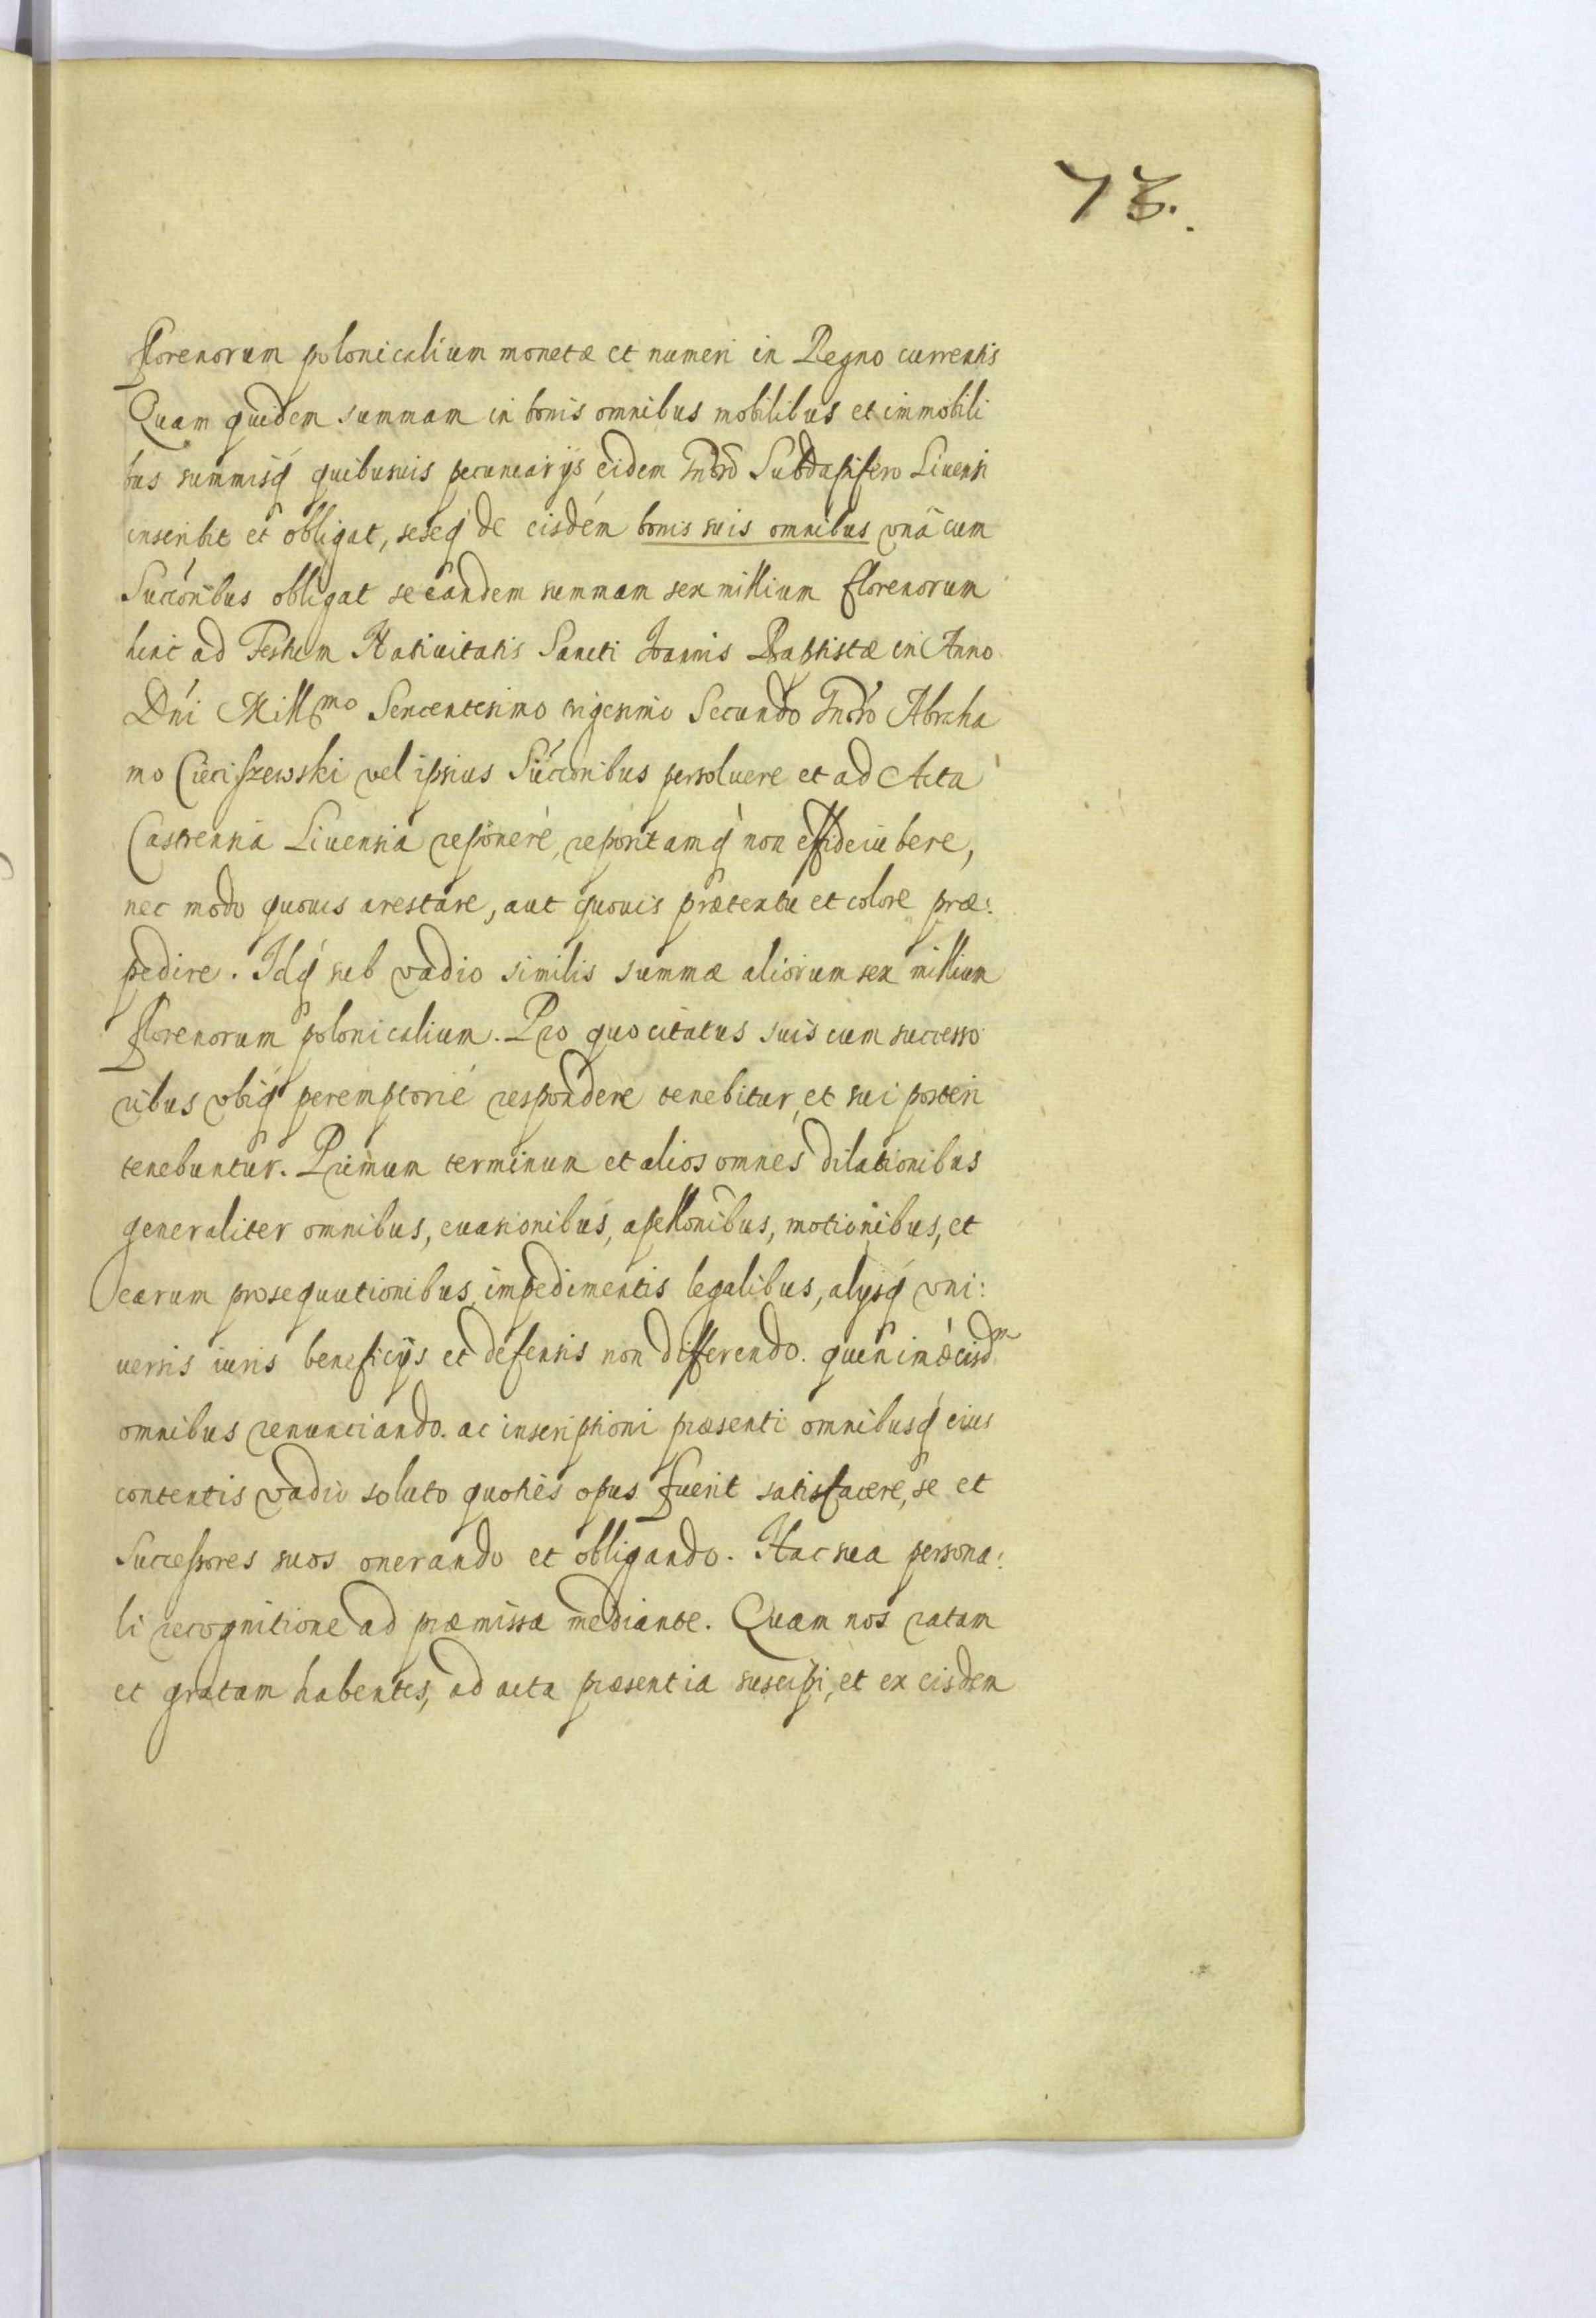 73.
florenorum polonicalium monetæ et numeri in Regno currentis
Quam quidem summam in bonis omnibus mobilibus et immobili
bus summisq́ quibusuis pecuniarijs eidem Gnõso Subdapifero Liuensi
inscribit et obligat, seseq́ de eisdém bonis suis omnibus vnâ cum
Succõribus obligat se eandem summam sex millium florenorum
hinc ad Festum Natiuitatis Sancti Ioannis Baptistæ in Anno
Dńi Mill͠mo Sexcentesimo trigesimo Secundo Abraha
mo Cieciszewski vel ipsius Succõribus persoluere et ad Acta
Castrensia Liuensia reponere, repositamq́ non effideiubere,
nec modo quouis arestare, aut quouis prætextu et colore præ:
pedire. Idq́ sub vadio similis summæ aliorum sex millium
florenorum polonicalium. Pro quo citatus suis cum successo
ribus vbiq́ peremptorié respondere tenebitur, et sui posteri
tenebuntur. Primum terminum et alios omnes dilationibus
generaliter omnibus, euasionibus, apellonibus, motionibus, et
earum prosequutionibus, impedimentis legalibus, alijsq́ vni:
uersis iuris beneficijs et defensis non differendo. quin imò eisdm
omnibus renunciando. ac inscriptioni præsenti omnibusq́ eius
contentis vadio soluto quotiès opus fuerit satisfacere, se et
Successores suos onerando et obligando. Hac sua persona:
li recognitione ad præmissa mediante. Quam nos ratam
et gratam habentes, ad acta præsentia suscipi, et ex eisdem